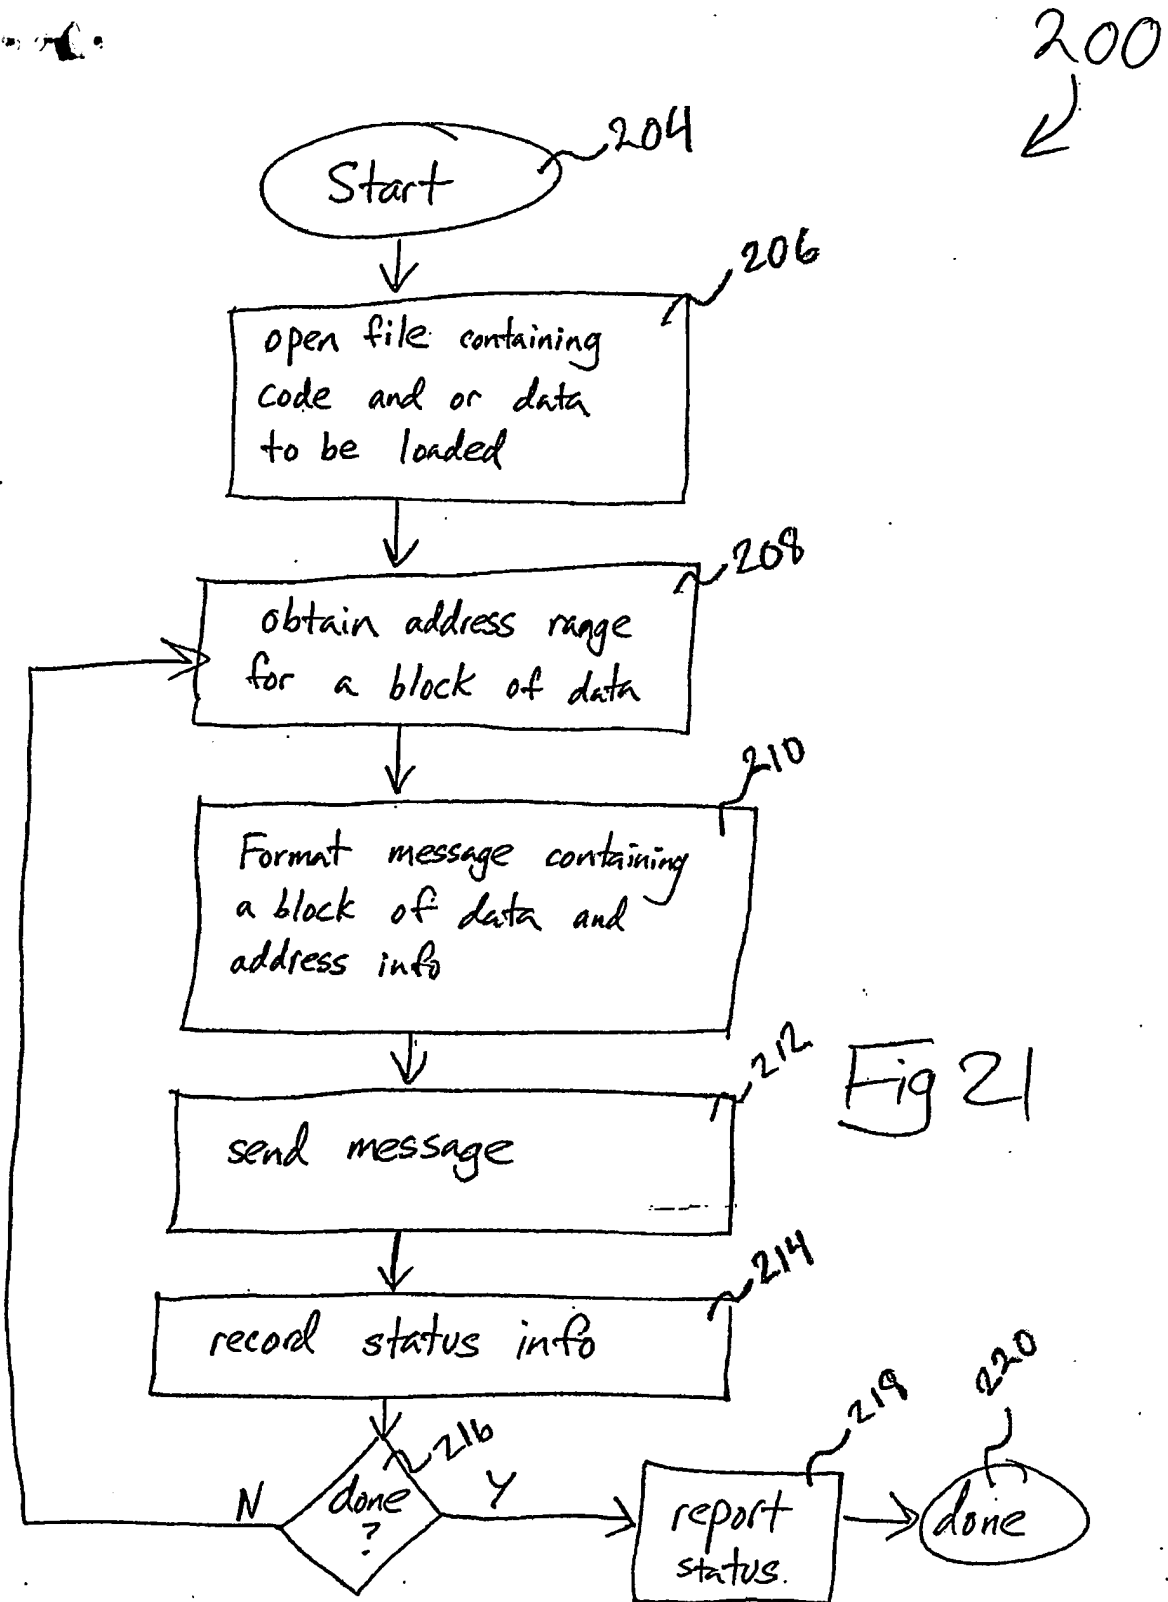 200
204
Start
206
open file containing
code and or data
to be loaded
208
obtain address range
for a block of data
210
Format message containing
a block of data and
address info
212
Fig 21
send message
214
record status info
216
done
?
N
Y
218
report
status.
220
done